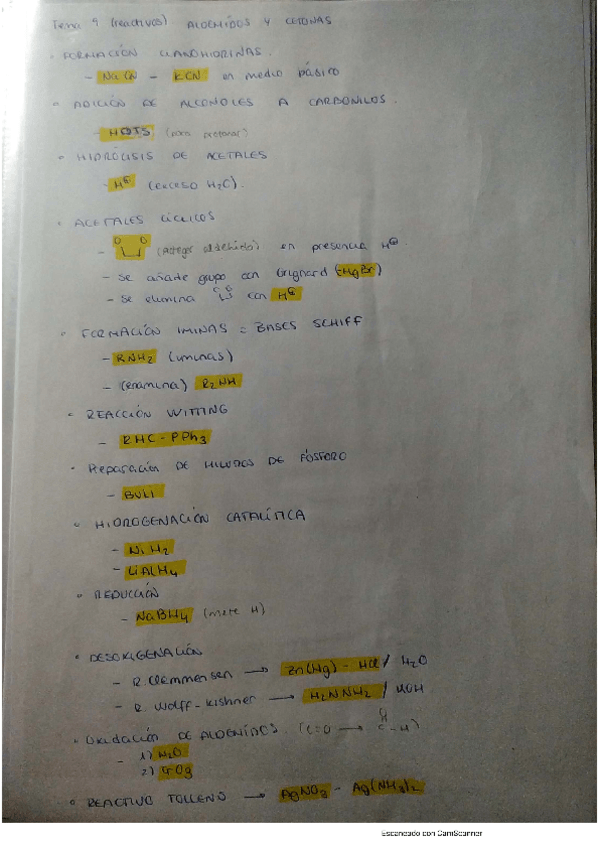 Tema 9 (reactivos) ALDEHÍDOS Y CETONAS
· FORMACIÓN CIANOHIDRINAS.
- NaCN - KCN en medio básico
· ADICIÓN DE ALCOHOLES A CARBONILOS.
- HOTS (para protonar)
· HIDRÓLISIS DE ACETALES
- H⊕ (exceso H₂O).
· ACETALES CÍCLICOS
- O O (proteger aldehído) en presencia H⊕
- Se añade grupo con Grignard (MgBr)
- Se elimina O O con H⊕
· FORMACIÓN IMINAS = BASES SCHIFF
- RNH₂ (iminas)
- (enamina) R₂NH
· REACCIÓN WITTING
- RHC-PPh₃
· Preparación DE ILUROS DE FÓSFORO
- BULI
· HIDROGENACIÓN CATALÍTICA
- Ni H₂
- LiAlH₄
· REDUCCIÓN
- NaBH₄ (mete H)
· DESOXIGENACIÓN
- R. Clemmensen → Zn(Hg) - HCl / H₂O
- R. Wolff-Kishner → H₂NNH₂ / KOH
· Oxidación DE ALDEHÍDOS. (C=O → C-H)
- 1) H₂O
2) CrO₃
· REACTIVO TOLLENS → AgNO₃ - Ag(NH₃)₂
Escaneado con CamScanner